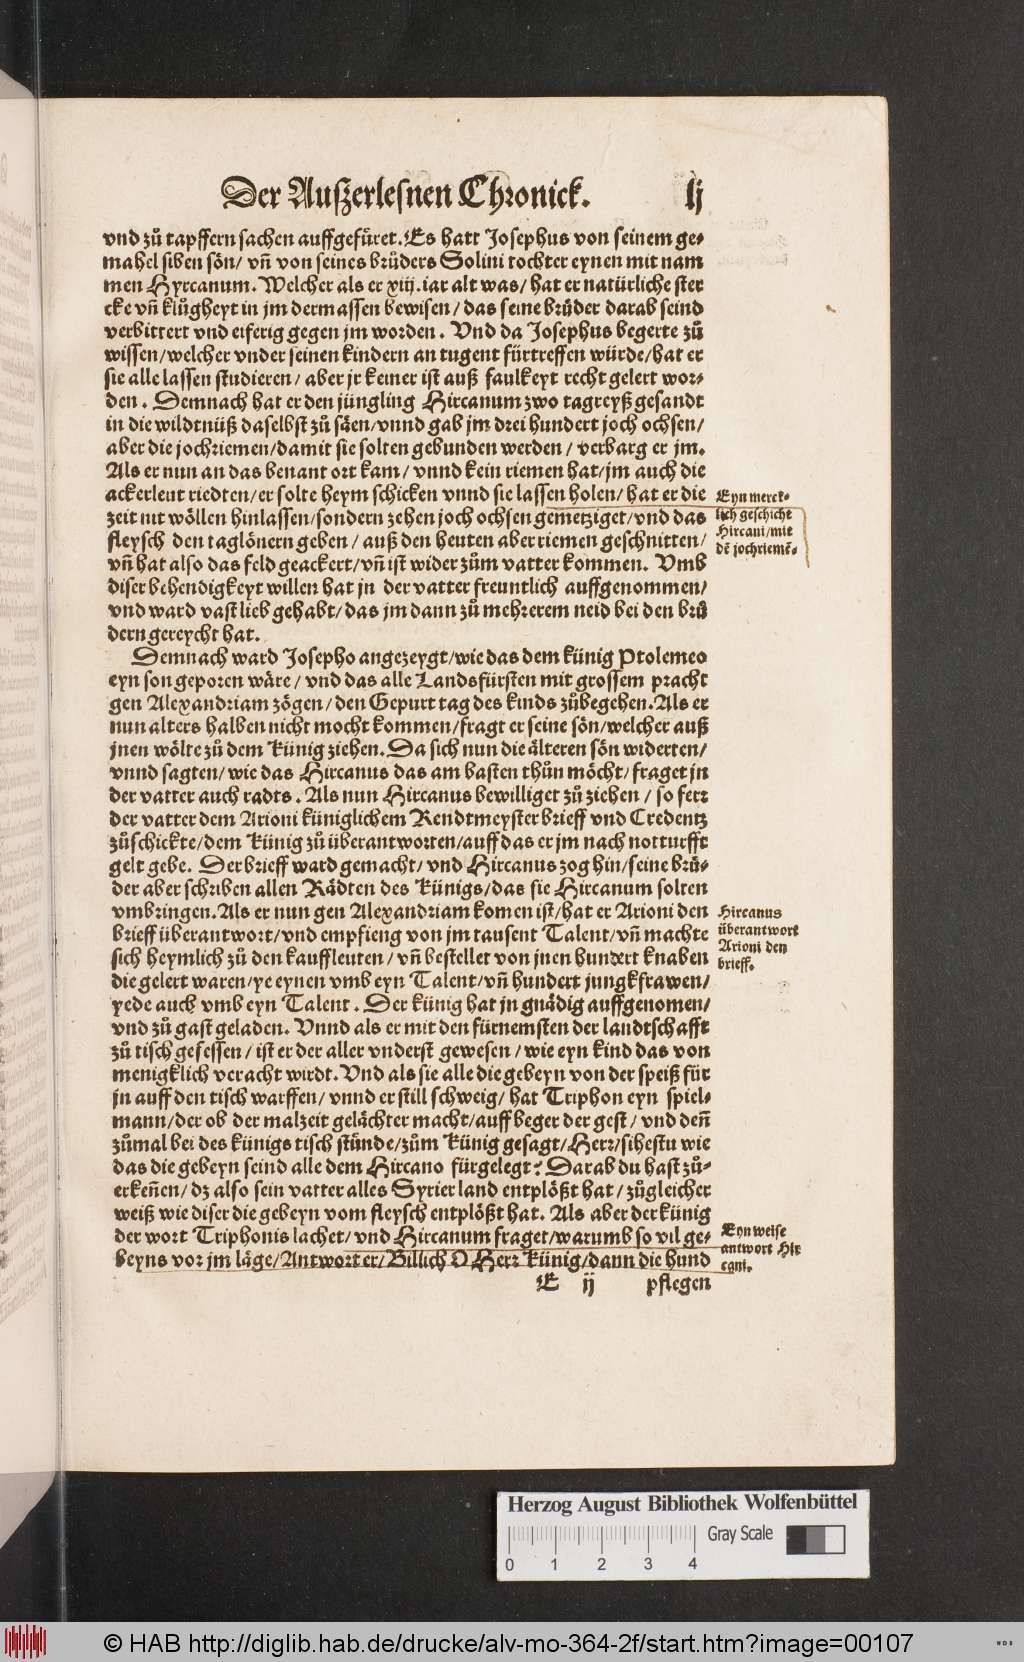 Der Außerlesnen Chronick. lj
vnd zů tapffern sachen auffgefüret. Es hatt Josephus von seinem ge⸗
mahel siben sön/ vñ von seines brůders Solini tochter eynen mit nam
men Hyrcanum. Welcher als er xiij. iar alt was/ hat er natürliche ster
cke vñ klůgheyt in jm dermassen bewisen/ das seine brüder darab seind
verbittert vnd eiferig gegen jm worden. Vnd da Josephus begerte zů
wissen/ welcher vnder seinen kindern an tugent fürtreffen würde/ hat er
sie alle lassen studieren/ aber jr keiner ist auß faulkeyt recht gelert wor⸗
den. Demnach hat er den jüngling Hircanum zwo tagreyß gesandt
in die wildtnüß daselbst zů säen/ vnnd gab jm drei hundert joch ochsen/
aber die jochriemen/ damit sie solten gebunden werden/ verbarg er jm.
Als er nun an das benant ort kam/ vnnd kein riemen hat/ jm auch die
ackerleut riedten/ er solte heym schicken vnnd sie lassen holen/ hat er die
zeit nit wöllen hinlassen/ sondern zehen joch ochsen gemetziget/ vnd das
fleysch den taglönern geben/ auß den heuten aber riemen geschnitten/
vñ hat also das feld geackert/ vñ ist wider zům vatter kommen. Vmb
diser behendigkeyt willen hat jn der vatter freuntlich auffgenommen/
vnd ward vast lieb gehabt/ das jm dann zů mehrerem neid bei den brů
dern gereycht hat.
Eyn merck⸗
lich geschicht
Hircani/ mit
dē jochriemē.
Demnach ward Josepho angezeygt/ wie das dem künig Ptolemeo
eyn son geporen wäre/ vnd das alle Landsfürsten mit grossem pracht
gen Alexandriam zögen/ den Gepurt tag des kinds zůbegehen. Als er
nun alters halben nicht mocht kommen/ fragt er seine sön/ welcher auß
jnen wölte zů dem Künig ziehen. Da sich nun die älteren sön widerten/
vnnd sagten/ wie das Hircanus das am basten thůn möcht/ fraget jn
der vatter auch radts. Als nun Hircanus bewilliget zů ziehen/ so ferr
der vatter dem Arioni küniglichem Rendtmeyster brieff vnd Credentz
zůschickte/ dem Künig zů überantworten/ auff das er jm nach notturfft
gelt gebe. Der brieff ward gemacht/ vnd Hircanus zog hin/ seine brü⸗
der aber schriben allen Rädten des Künigs/ das sie Hircanum solten
vmbringen. Als er nun gen Alexandriam komen ist/ hat er Arioni den
brieff überantwort/ vnd empfieng von jm tausent Talent/ vñ machte
sich heymlich zů den kauffleuten/ vñ bestellet von jnen hundert knaben
die gelert waren/ ye eynen vmb eyn Talent/ vñ hundert jungkfrawen/
yede auch vmb eyn Talent. Der künig hat jn gnädig auffgenomen/
vnd zů gast geladen. Vnnd als er mit den fürnemsten der landtschafft
zů tisch gesessen/ ist er der aller vnderst gewesen/ wie eyn kind das von
menigklich veracht wirdt. Vnd als sie alle die gebeyn von der speiß für
jn auff den tisch warffen/ vnnd er still schweig/ hat Triphon eyn spiel⸗
mann/ der ob der malzeit gelächter macht/ auff beger der gest/ vnd deñ
zůmal bei des künigs tisch stünde/ zům Künig gesagt/ Herr/ sihestu wie
das die gebeyn seind alle dem Hircano fürgelegt? Darab du hast zů⸗
erkeñen/ dz also sein vatter alles Syrier land entplößt hat/ zůgleicher
weiß wie diser die gebeyn vom fleysch entplößt hat. Als aber der künig
der wort Triphonis lachet/ vnd Hircanum fraget/ warumb so vil ge⸗
beyns vor jm läge/ Antwort er/ Billich O Herr Künig/ dann die hund
Hircanus
überantwort
Arioni den
brieff.
Eyn weise
antwort Hir
cani.
E ij pflegen
Herzog August Bibliothek Wolfenbüttel
Gray Scale
0 1 2 3 4
© HAB http://diglib.hab.de/drucke/alv-mo-364-2f/start.htm?image=00107